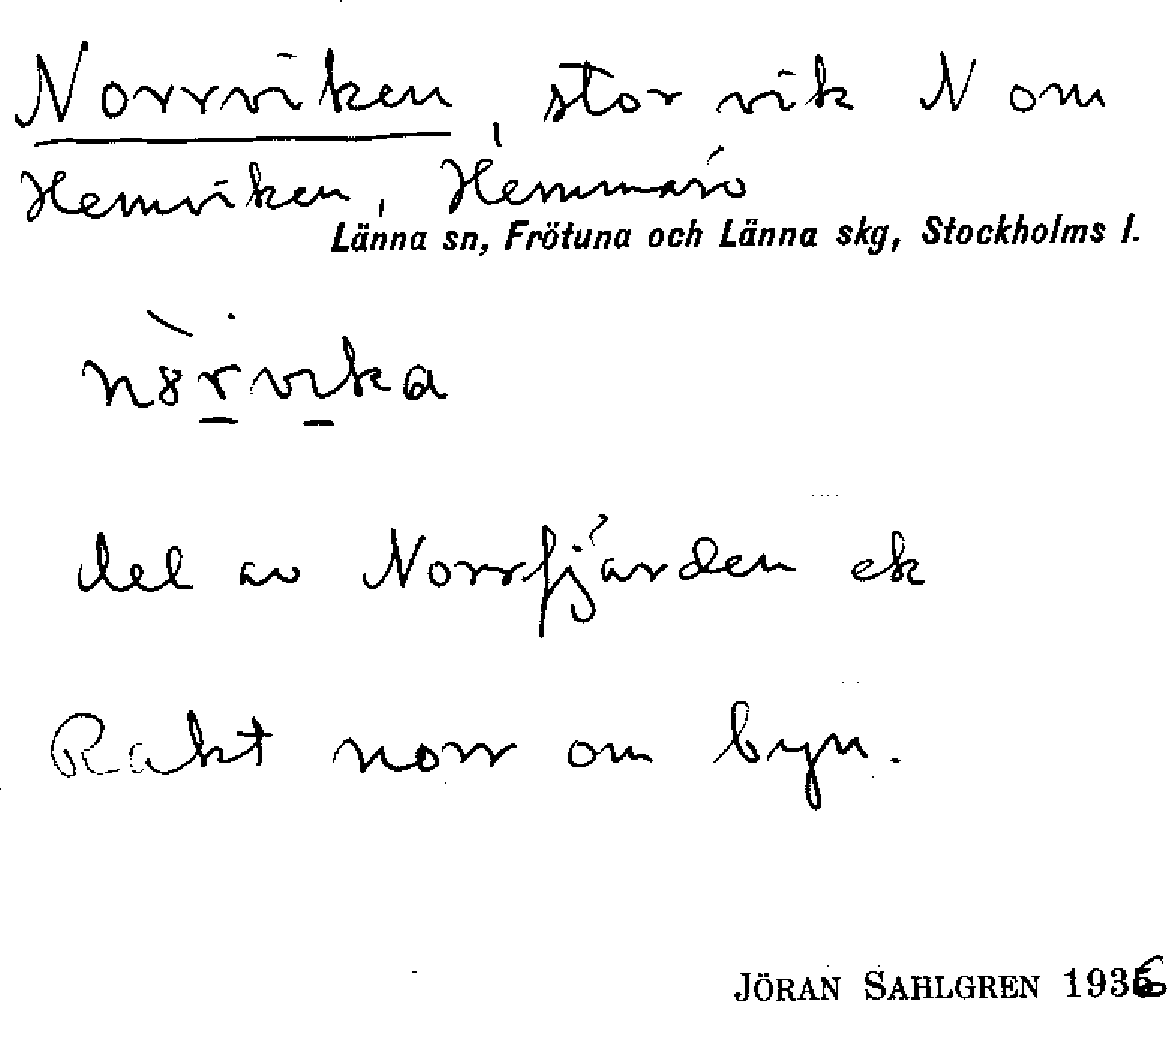 Norrviken, stor vik N om
Hemviken, Hemmarö
Länna sn, Frötuna och Länna skg, Stockholms l.
del av Norrfjärden ek
Rakt norr om byn.
JÖRAN SAHLGREN 1936